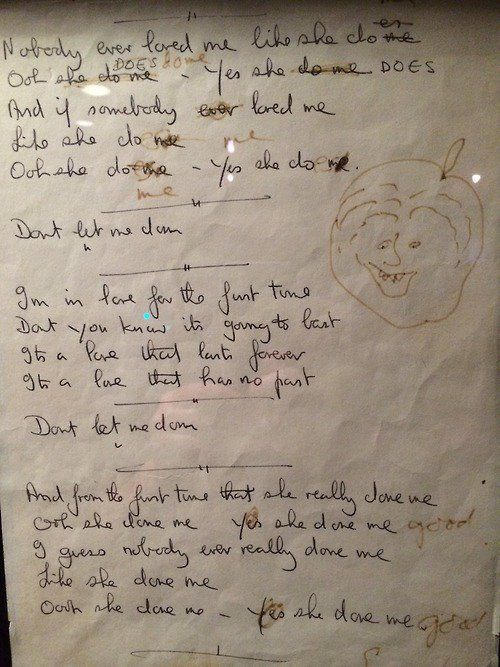 Nobody ever loved me like she do me es
Ooh she do me DOES do me - Yes she do me DOES
And if somebody ever loved me
Like she do me me
Ooh she do me - Yes she do me.
me
Dont let me down
Im in love for the first time
Dont you know its going to last
Its a love that lasts forever
Its a love that has no past
Dont let me down
And from the first time that she really done me
Ooh she done me Yes she done me good
I guess nobody ever really done me
Like she done me
Ooh she done me - Yes she done me good